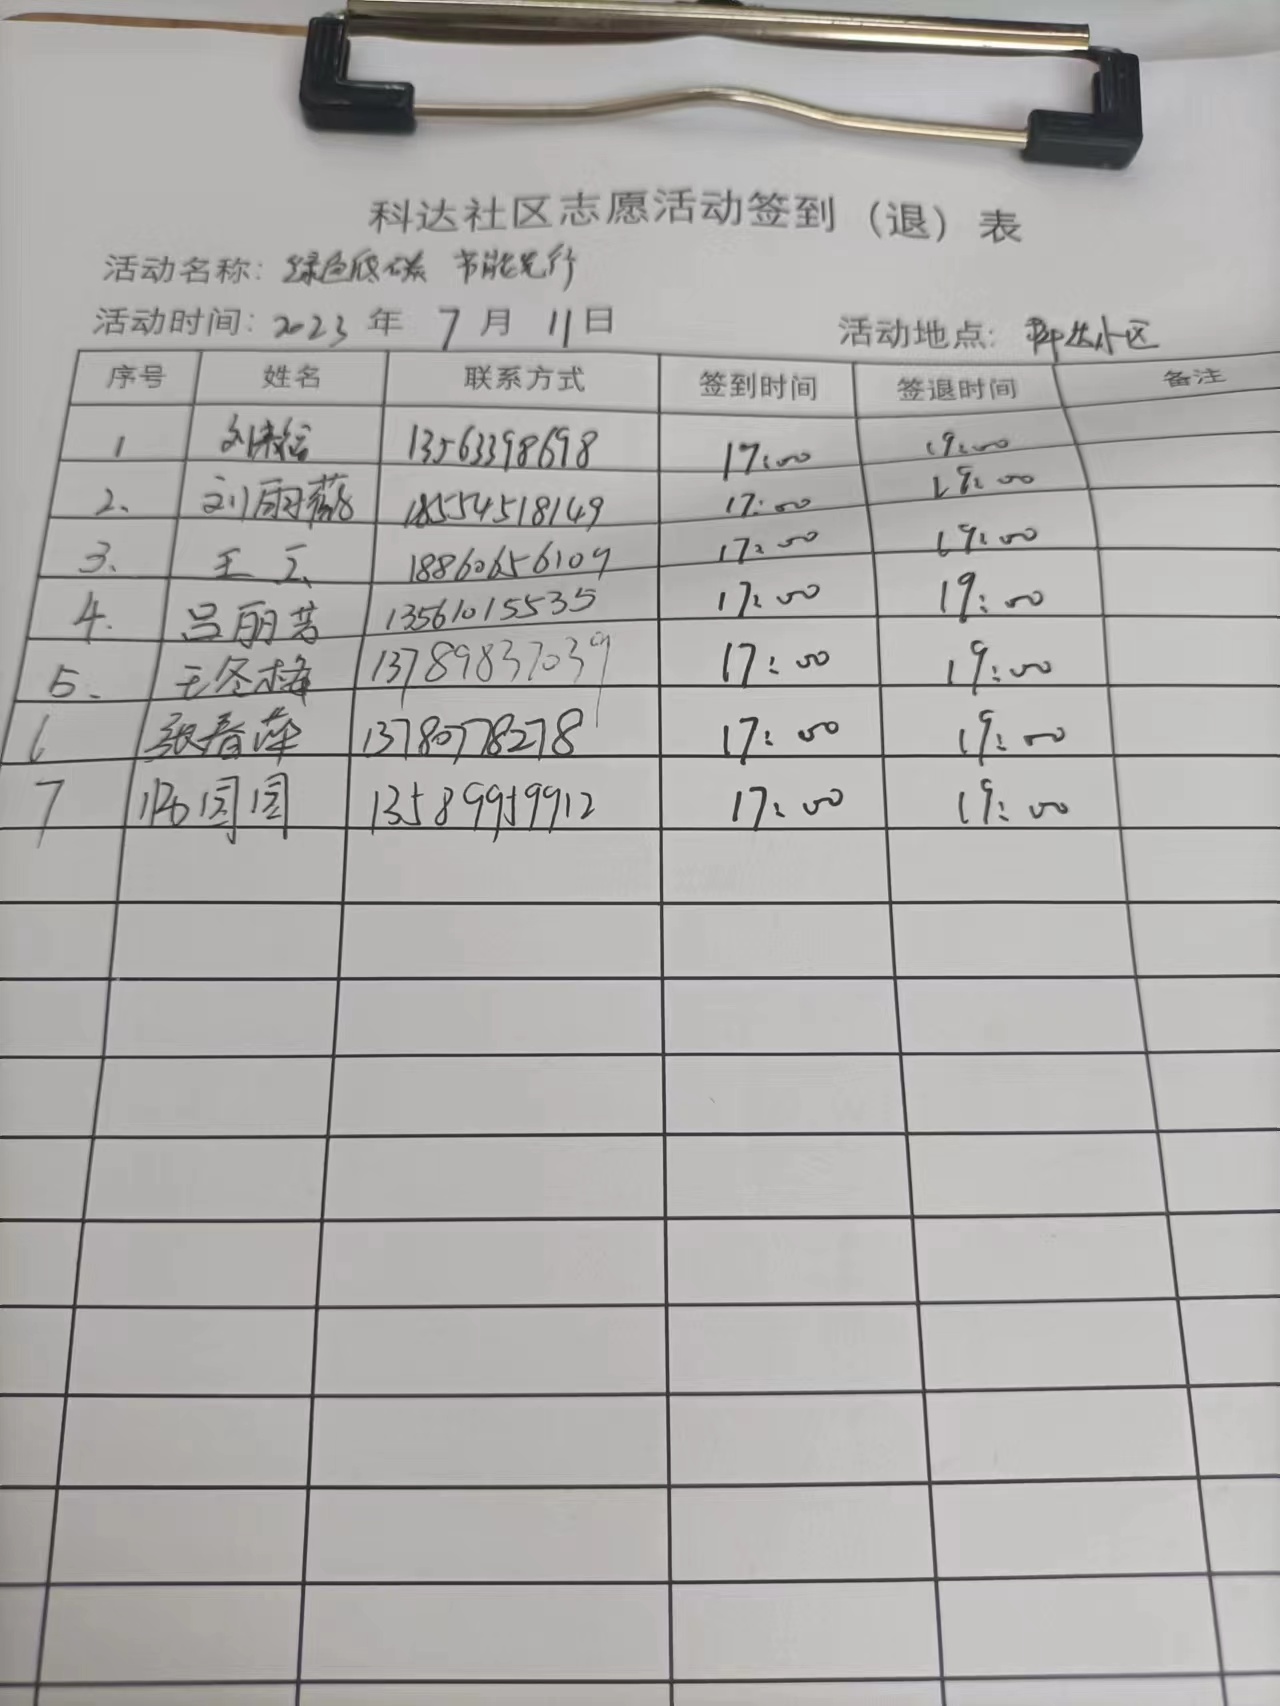 科达社区志愿活动签到（退）表
活动名称：绿色低碳 节能先行
活动时间：2023 年 7 月 11 日 活动地点：科达小区
序号 姓名 联系方式 签到时间 签退时间 备注
1 刘 13563398698 17:00 19:00
2. 刘雨薇 18554518149 17:00 19:00
3. 王 18860656109 17:00 19:00
4. 吕丽芳 13561015535 17:00 19:00
5. 王冬梅 13789837039 17:00 19:00
6 张春萍 13780778278 17:00 19:00
7 园园 13589959912 17:00 19:00